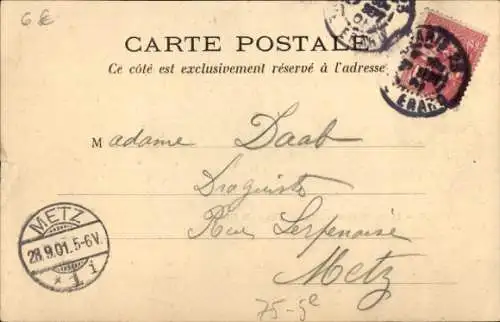 6 €
CARTE POSTALE
Ce côté est exclusivement réservé à l'adresse
PARIS
ERARD
ERARD
Madame Daab
Droguiste
Rue Serpenoise
Metz
METZ
28.9.01.5-6V.
* 1 i
75-5e